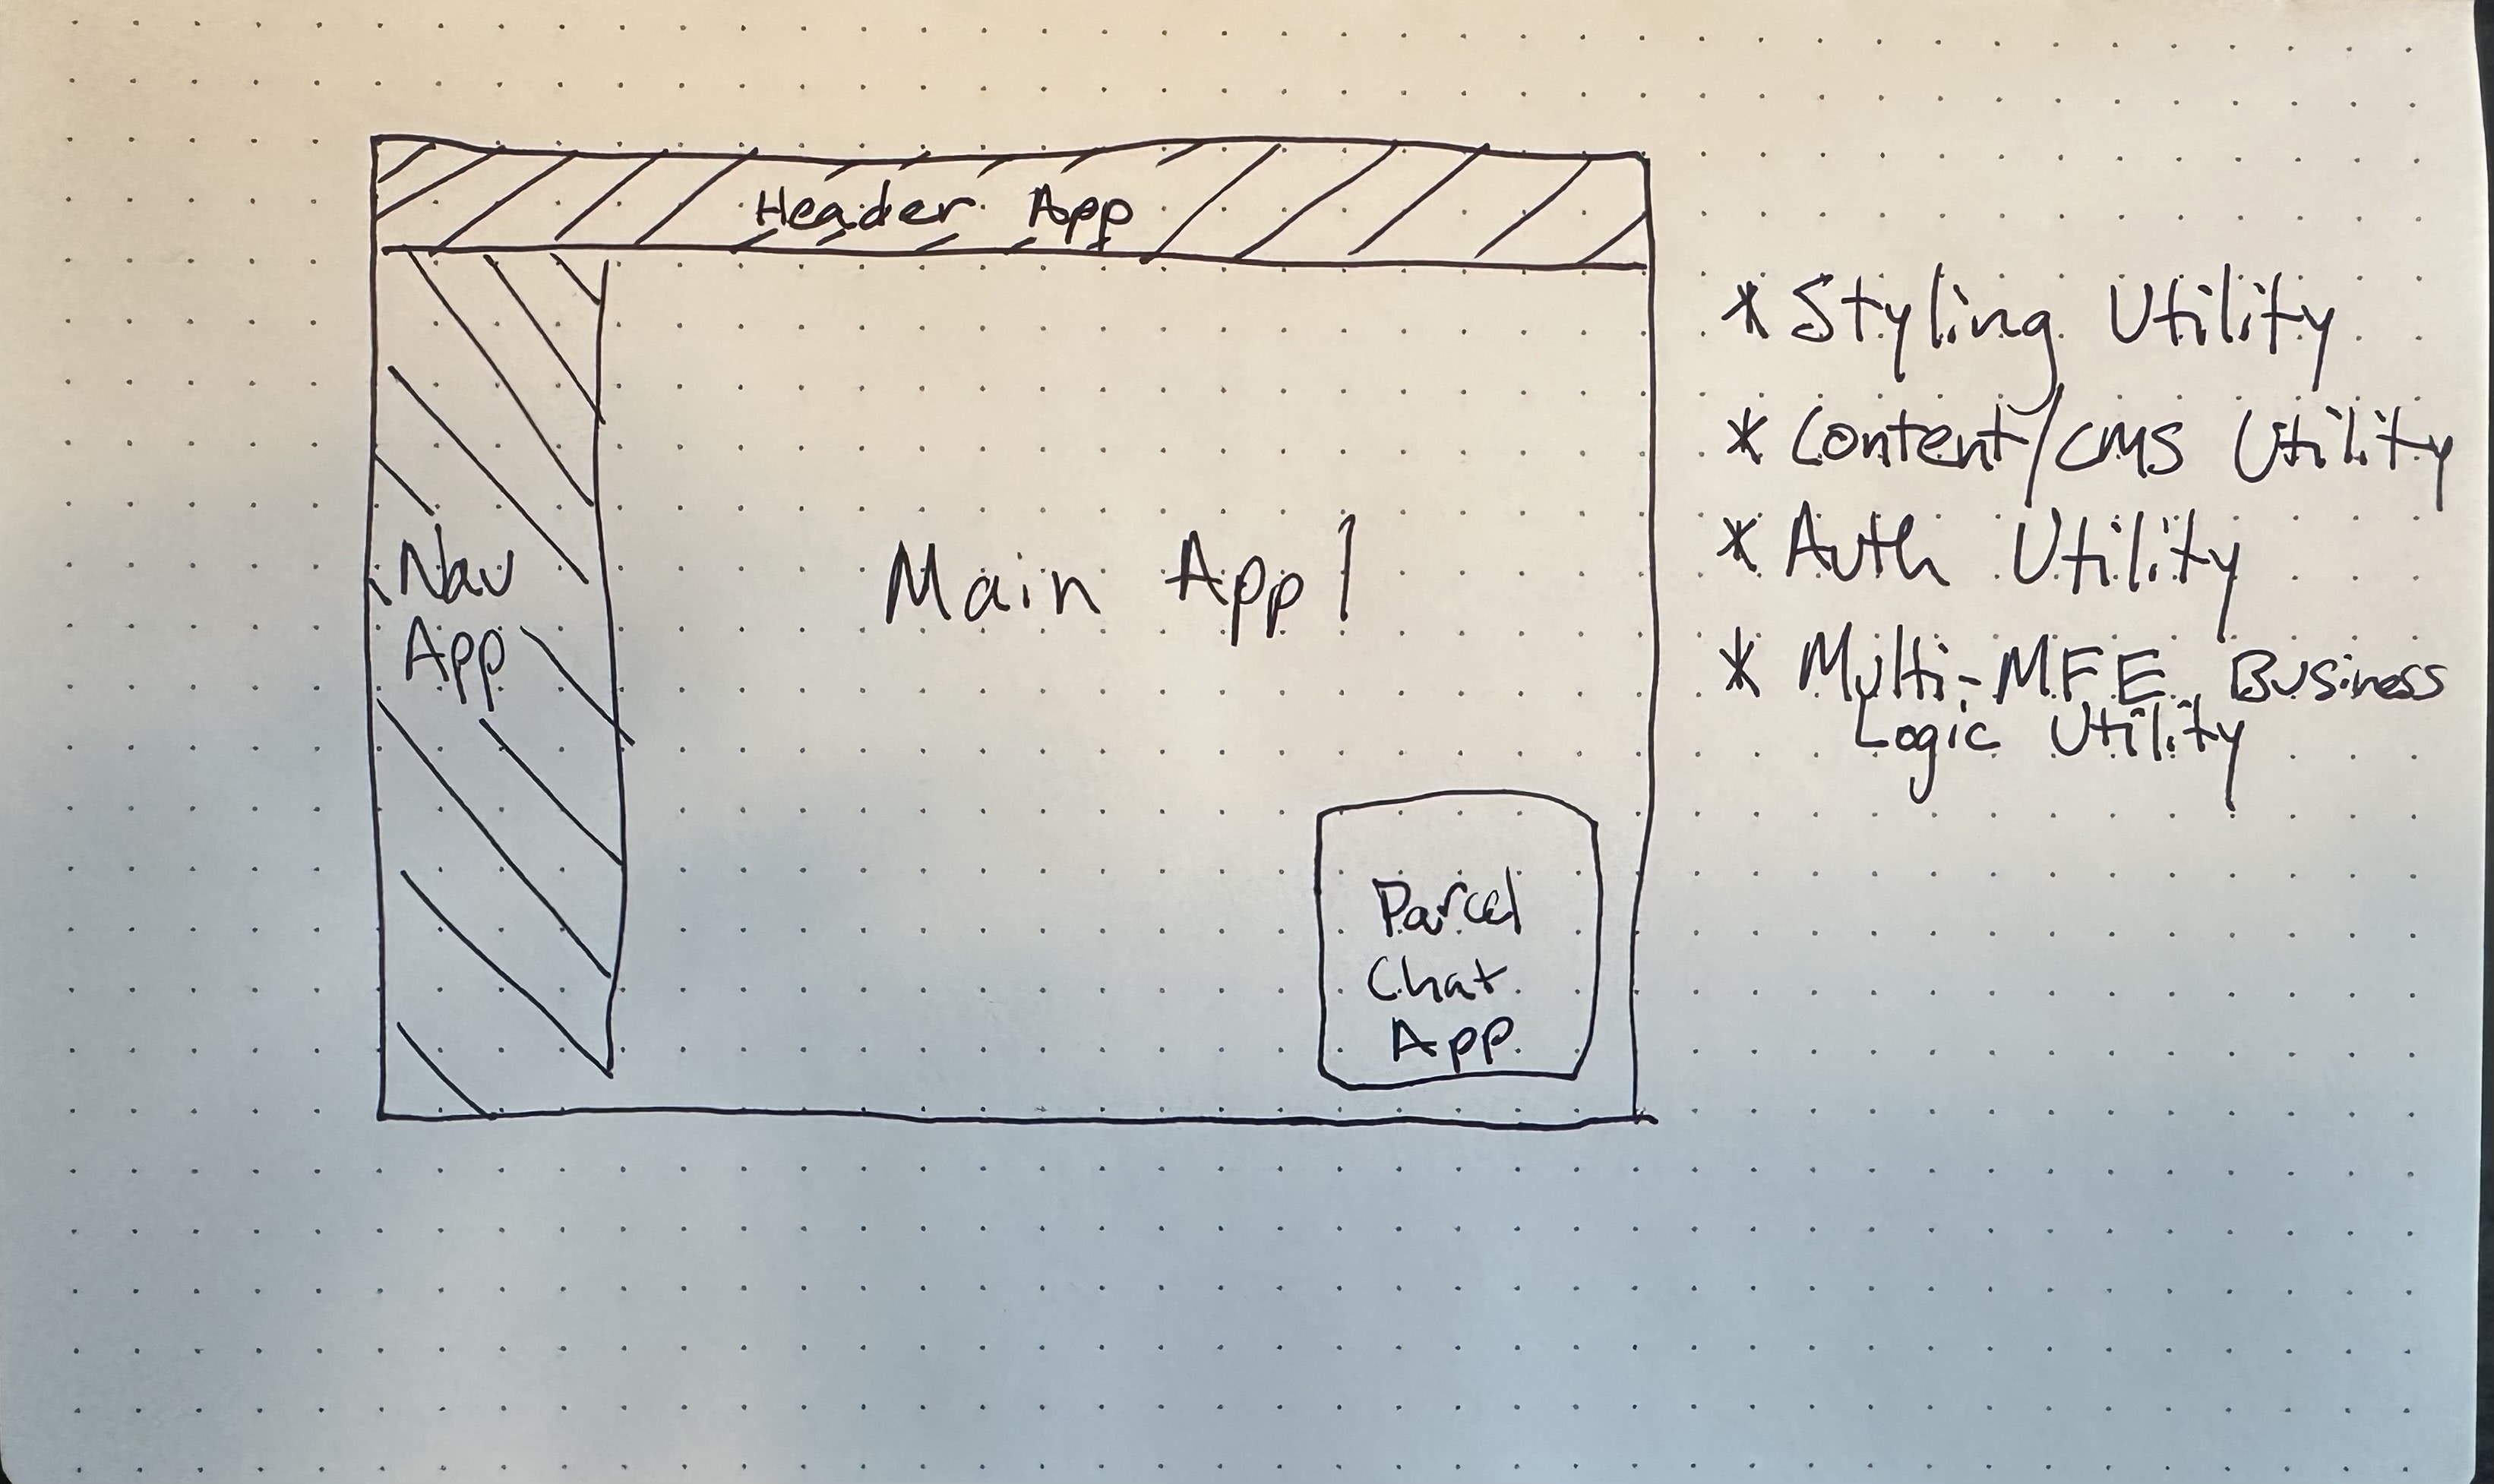 Header App
Nav
App
Main App 1
Parcel
Chat
App
* Styling Utility
* Content/CMS Utility
* Auth Utility
* Multi-MFE Business
Logic Utility